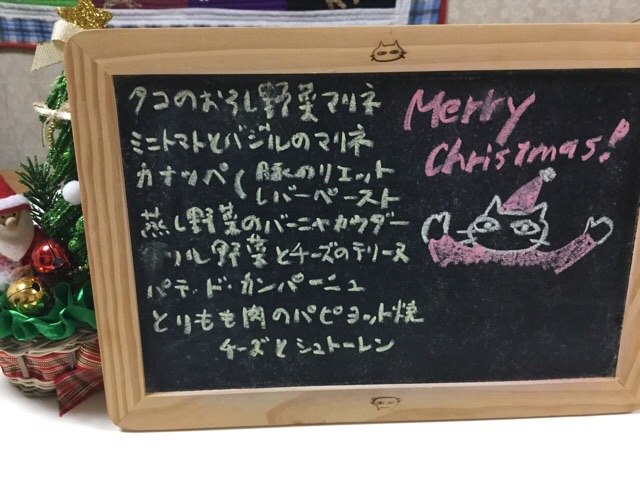 タコのおろし野菜マリネ
ミニトマトとバジルのマリネ
カナッペ(豚のリエット
レバーペースト
蒸し野菜のバーニャカウダー
グリル野菜とチーズのテリーヌ
パテ・ド・カンパーニュ
とりもも肉のパピヨット焼
チーズとシュトーレン
Merry
Christmas!